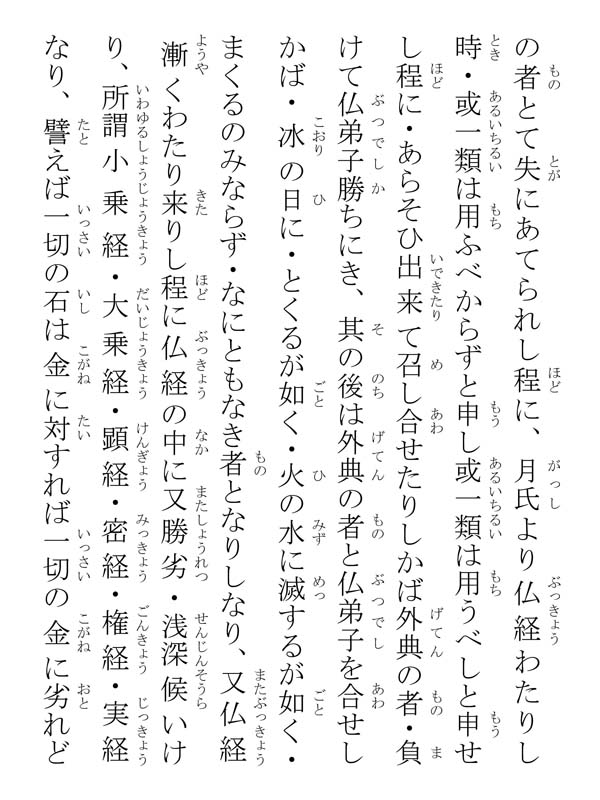 の者とて失にあてられし程に、月氏より仏経わたりし
時・或一類は用ふべからずと申し或一類は用うべしと申せ
し程に・あらそひ出来て召し合せたりしかば外典の者・負
けて仏弟子勝ちにき、其の後は外典の者と仏弟子を合せし
かば・冰の日に・とくるが如く・火の水に滅するが如く・
まくるのみならず・なにともなき者となりしなり、又仏経
漸くわたり来りし程に仏経の中に又勝劣・浅深候いけ
り、所謂小乗経・大乗経・顕経・密経・権経・実経
なり、譬えば一切の石は金に対すれば一切の金に劣れど